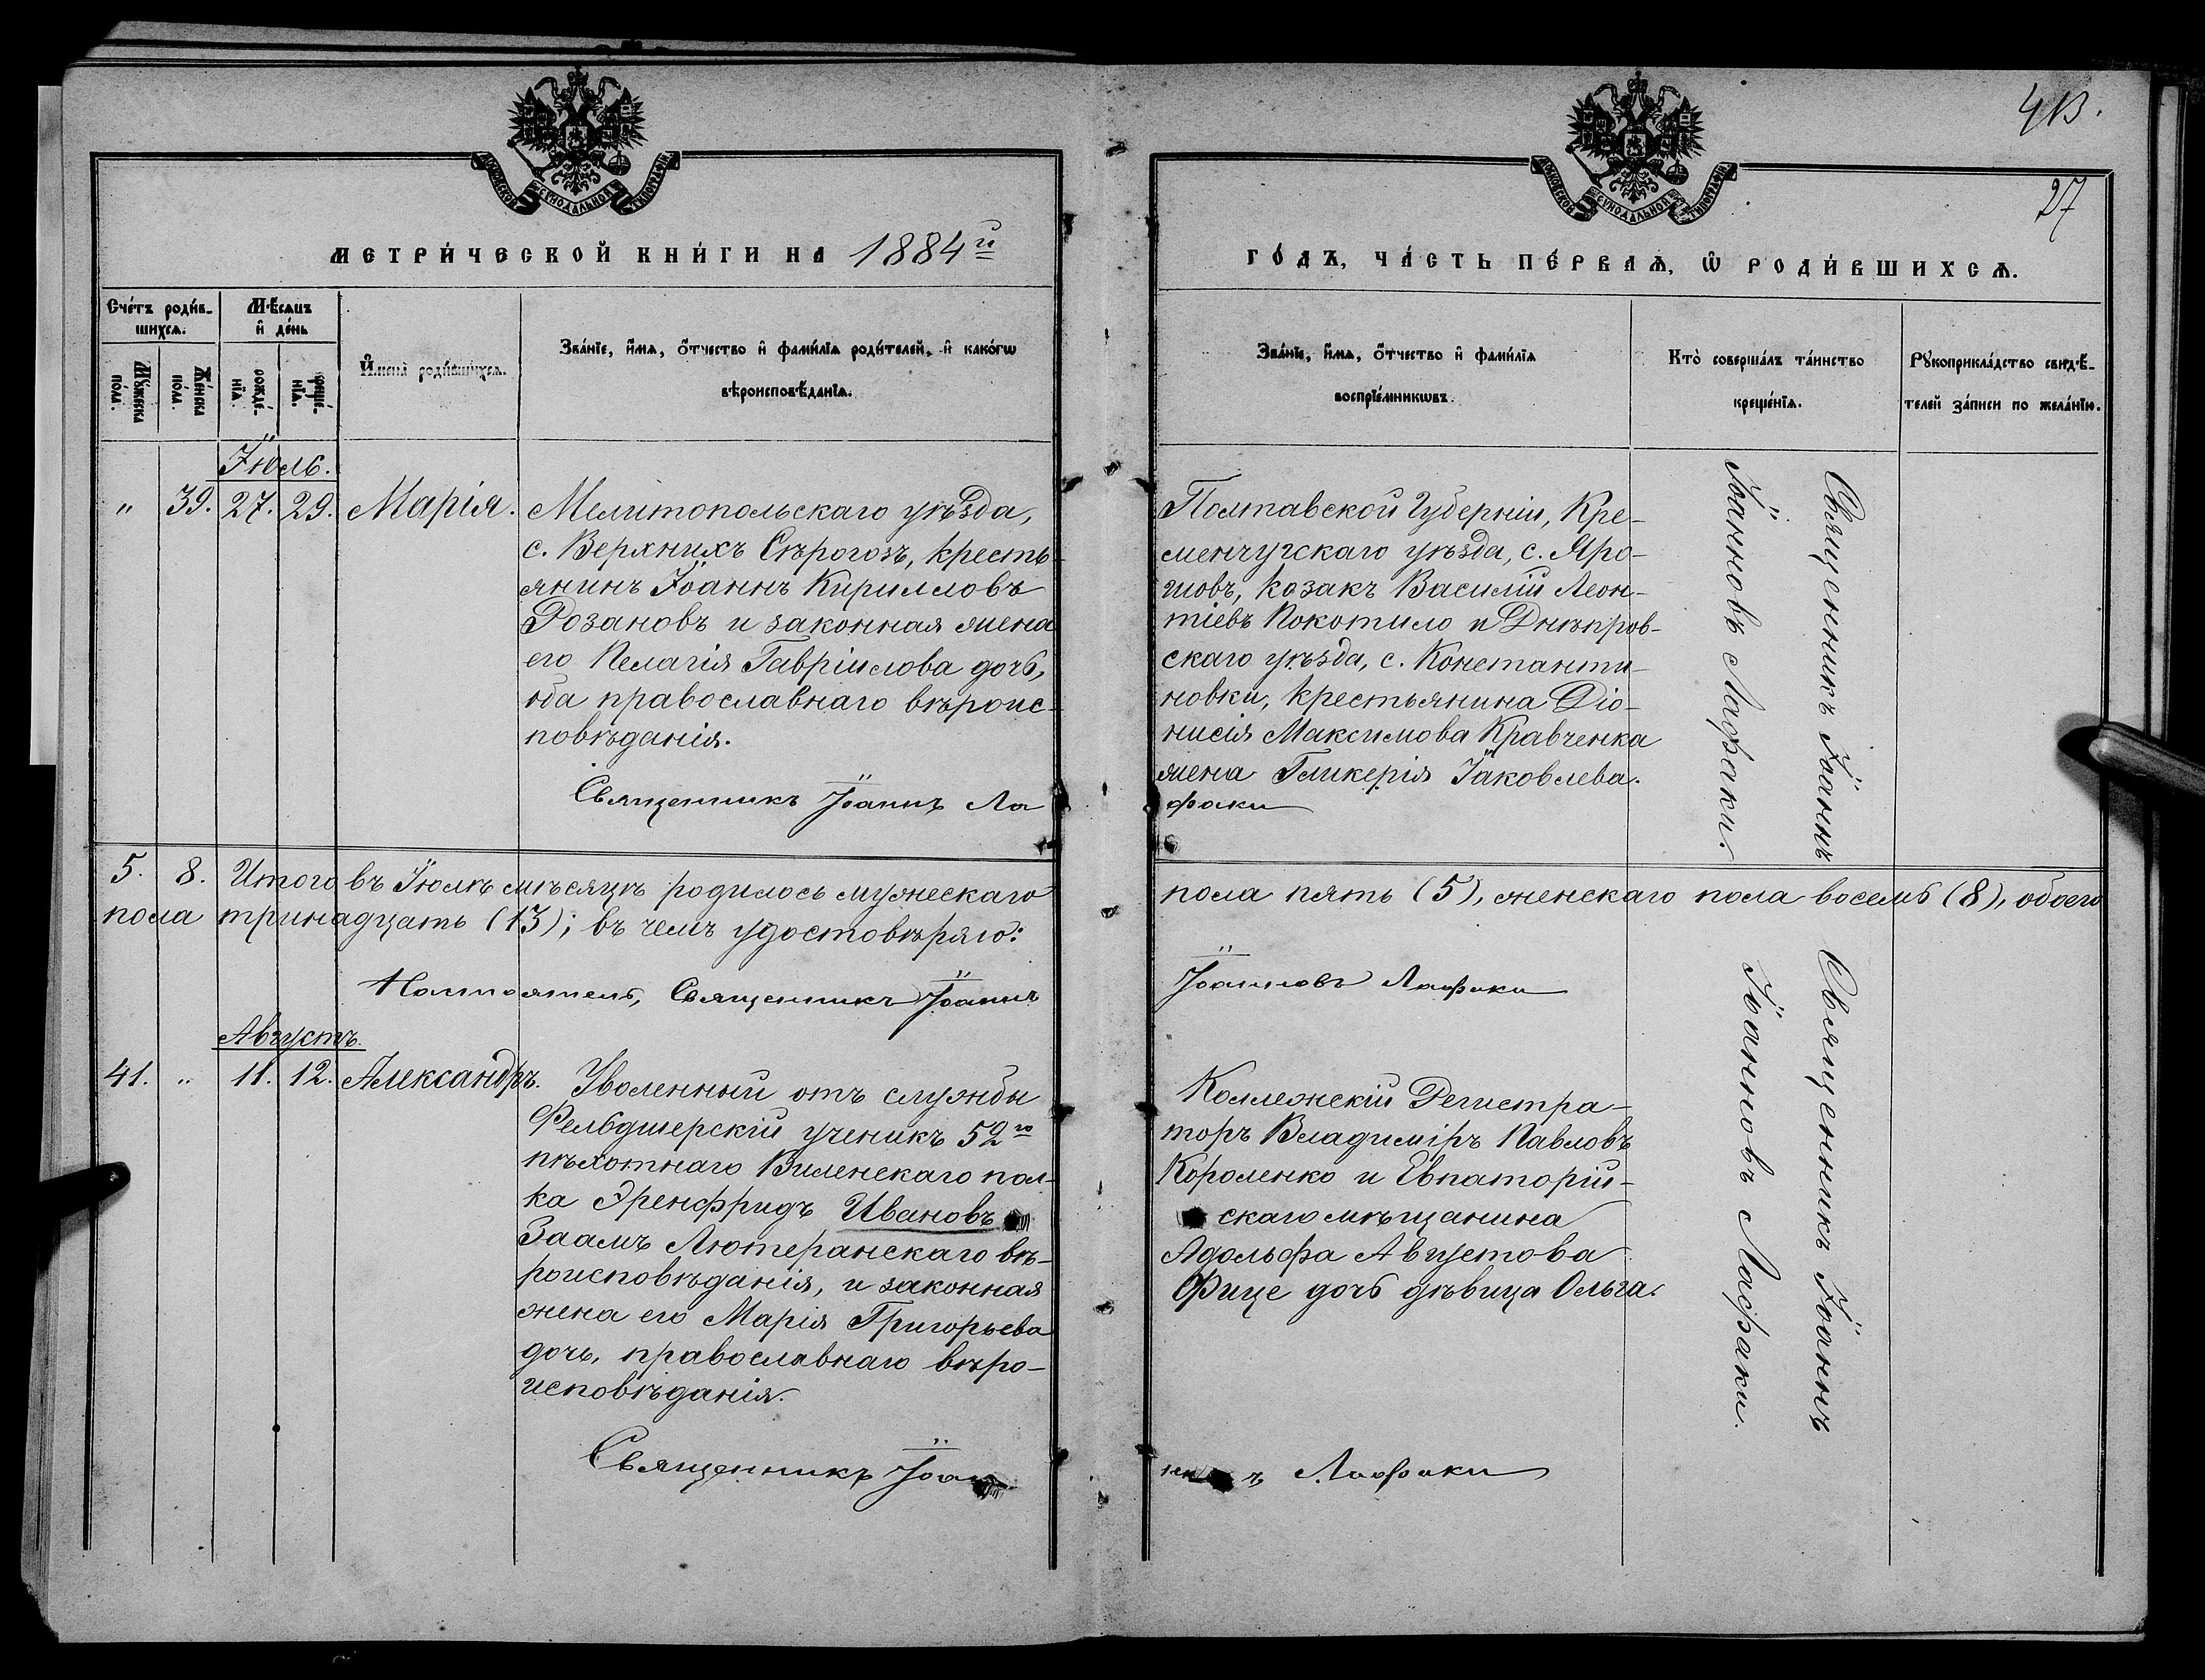 413.
27
МОСКОВСКОЙ СѴНОДАЛЬНОЙ ТИПОГРАФІИ
МОСКОВСКОЙ СѴНОДАЛЬНОЙ ТИПОГРАФІИ
МЕТРИ́ЧЕСКОЙ КНИ́ГИ НА 1884й
ГО́ДЪ, ЧА́СТЬ ПЕ́РВАѦ, Ѡ РОДИ́ВШИХСѦ.
Сче́тъ роди́в-
шихсѧ.
Мꙋ́жеска по́ла.
Же́нска по́ла.
Мѣ́сѧцъ
и де́нь
рожде́-нїѧ.
креще́-нїѧ.
Имена̀ роди́вшихсѧ.
Зва́нїе, и́мѧ, о́тчество и фами́лїѧ роди́телей, и како́гѡ
вѣроисповѣ́данїѧ.
Зва́нїе, и́мѧ, о́тчество и фами́лїѧ
воспрїе́мникѡвъ.
Кто̀ соверша́лъ та́инство
креще́нїѧ.
Рꙋкоприкла́дство свидѣ́-
телей за́писи по жела́нїю.
Іюль.
" 39. 27. 29. Марія.
Мелитопольскаго уѣзда,
с. Верхнихъ Сѣрогозъ, кресть-
янинъ Іоаннъ Кирилловъ
Розановъ и законная жена
его Пелагія Гавріилова дочь,
оба православнаго вѣроис-
повѣданія.
Священникъ Іоаннъ Ла
Полтавской Губерніи, Кре-
менчугскаго уѣзда, с. Яро-
шовъ, козакъ Василій Леон-
тіевъ Покотило и Днѣпров-
скаго уѣзда, с. Константи-
новки, крестьянина Діо-
нисія Максимова Кравченка
жена Гликерія Іаковлева.
факи
Священникъ Іоаннъ
Іоанновъ Лафаки.
5. 8. Итого въ Іюлѣ мѣсяцѣ родилось мужескаго
пола пять (5), женскаго пола восемь (8), обоего
пола тринадцать (13); въ чемъ удостовѣряю:
Настоятель, Священникъ Іоаннъ
Іоанновъ Лафаки
Августъ.
41. " 11. 12. Александръ.
Уволенный отъ службы
Фельдшерскій ученикъ 52го
пѣхотнаго Виленскаго пол-
ка Эренфридъ Ивановъ
Заамъ Лютеранскаго вѣ-
роисповѣданія, и законная
жена его Марія Григорьева
дочь, православнаго вѣро-
исповѣданія.
Священникъ Іоан
Коллежскій Регистра-
торъ Владиміръ Павловъ
Короленко и Евпаторій-
скаго мѣщанина
Адольфа Августова
Фице дочь дѣвица Ольга.
Лафаки
Священникъ Іоаннъ
Іоанновъ Лафаки.